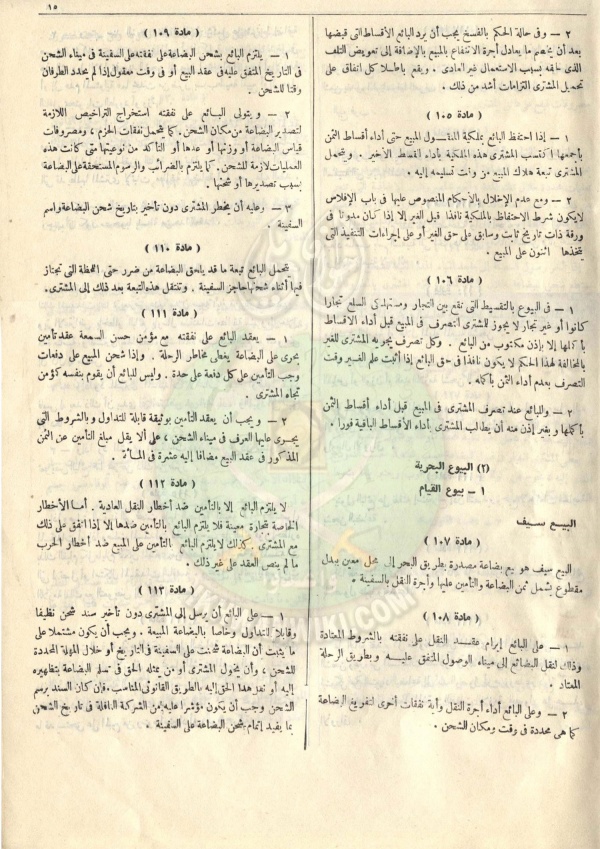 ١٥
٢ – وفى حالة الحكم بالفسخ يجب أن يرد البائع الأقساط التى قبضها
بعد أن يخصم ما يعادل أجرة الانتفاع بالمبيع بالإضافة إلى تعويض التلف
الذى لحقه بسبب الاستعمال غير العادى . ويقع باطلا كل اتفاق على
تحميل المشترى التزامات أشد من ذلك .
( مادة ١٠٥ )
١ – إذا احتفظ البائع بملكية المنقول المبيع حتى أداء أقساط الثمن
بأجمعها اكتسب المشترى هذه الملكية بأداء القسط الأخير . ويتحمل
المشترى تبعة هلاك المبيع من وقت تسليمه إليه .
٢ – ومع عدم الإخلال بالأحكام المنصوص عليها فى باب الإفلاس
لا يكون شرط الاحتفاظ بالملكية نافذا قبل الغير إلا إذا كان مدونا فى
ورقة ذات تاريخ ثابت وسابق على حق الغير أو على إجراءات التنفيذ التى
يتخذها الدائنون على المبيع .
( مادة ١٠٦ )
١ – فى البيوع بالتقسيط التى تقع بين التجار ومستهلكى السلع تجارا
كانوا أو غير تجار لا يجوز للمشترى التصرف فى المبيع قبل أداء الأقساط
بأكملها إلا بإذن مكتوب من البائع . وكل تصرف يجريه المشترى للغير
بالمخالفة لهذا الحكم لا يكون نافذا فى حق البائع إذا أثبت علم الغير وقت
التصرف بعدم أداء الثمن بأكمله .
٢ – وللبائع عند تصرف المشترى فى المبيع قبل أداء أقساط الثمن
بأكملها وبغير إذن منه أن يطالب المشترى بأداء الأقساط الباقية فورا .
(٢) البيوع البحرية
١ – بيوع القيام
البيع سيف
( مادة ١٠٧ )
البيع سيف هو بيع بضاعة مصدرة بطريق البحر إلى محل معين ببدل
مقطوع يشمل ثمن البضاعة والتأمين عليها وأجرة النقل بالسفينة .
( مادة ١٠٨ )
١ – على البائع إبرام عقد النقل على نفقته بالشروط المعتادة
وذلك لنقل البضائع إلى ميناء الوصول المتفق عليه وبطريق الرحلة
المعتاد .
٢ – وعلى البائع أداء أجرة النقل وأية نفقات أخرى لتفريغ البضاعة
كما هى محددة فى وقت ومكان الشحن .
( مادة ١٠٩ )
١ – يلتزم البائع بشحن البضاعة على نفقته على السفينة فى ميناء الشحن
فى التاريخ المتفق عليه فى عقد البيع أو فى وقت معقول إذا لم يحدد الطرفان
وقتا للشحن .
٢ – ويتولى البائع على نفقته استخراج التراخيص اللازمة
لتصدير البضاعة من مكان الشحن . كما يتحمل نفقات الحزم ، ومصروفات
قياس البضاعة أو وزنها أو عدها أو التأكد من نوعيتها متى كانت هذه
العمليات لازمة للشحن . كما يلتزم بالضرائب والرسوم المستحقة على البضاعة
بسبب تصديرها أو شحنها .
٣ – وعليه أن يخطر المشترى دون تأخير بتاريخ شحن البضاعة واسم
السفينة .
( مادة ١١٠ )
يتحمل البائع تبعة ما قد يلحق البضاعة من ضرر حتى اللحظة التى تجتاز
فيها أثناء شحنها حاجز السفينة . وتنتقل هذه التبعة بعد ذلك إلى المشترى.
( مادة ١١١ )
١ – يعقد البائع على نفقته مع مؤمن حسن السمعة عقد تأمين
بحرى على البضاعة يغطى مخاطر الرحلة . وإذا شحن المبيع على دفعات
وجب التأمين على كل دفعة على حدة . وليس للبائع أن يقوم بنفسه كمؤمن
تجاه المشترى
٢ – ويجب أن يعقد التأمين بوثيقة قابلة للتداول وبالشروط التى
يجرى عليها العرف فى ميناء الشحن ، على ألا يقل مبلغ التأمين عن الثمن
المذكور فى عقد البيع مضافا إليه عشرة فى المائة .
( مادة ١١٢ )
لا يلتزم البائع إلا بالتأمين ضد أخطار النقل العادية . أما الأخطار
الخاصة بتجارة معينة فلا يلتزم البائع بالتأمين ضدها إلا إذا اتفق على ذلك
مع المشترى . كذلك لا يلتزم البائع بالتأمين على المبيع ضد أخطار الحرب
ما لم ينص العقد على غير ذلك .
( مادة ١١٣ )
١ – على البائع أن يرسل إلى المشترى دون تأخير سند شحن نظيفا
وقابلا للتداول وخاصا بالبضاعة المبيعة . ويجب أن يكون مشتملا على
ما يثبت أن البضاعة شحنت على السفينة فى التاريخ أو خلال المهلة المحددة
للشحن ، وأن يخول المشترى أو من يمثله الحق فى تسلم البضاعة بتظهيره
إليه أو نقل هذا الحق إليه بالطريق القانونى المناسب . فإن كان السند برسم
الشحن وجب أن يكون مؤشرا عليه من الشركة الناقلة فى تاريخ الشحن
بما يفيد إتمام شحن البضاعة على السفينة .